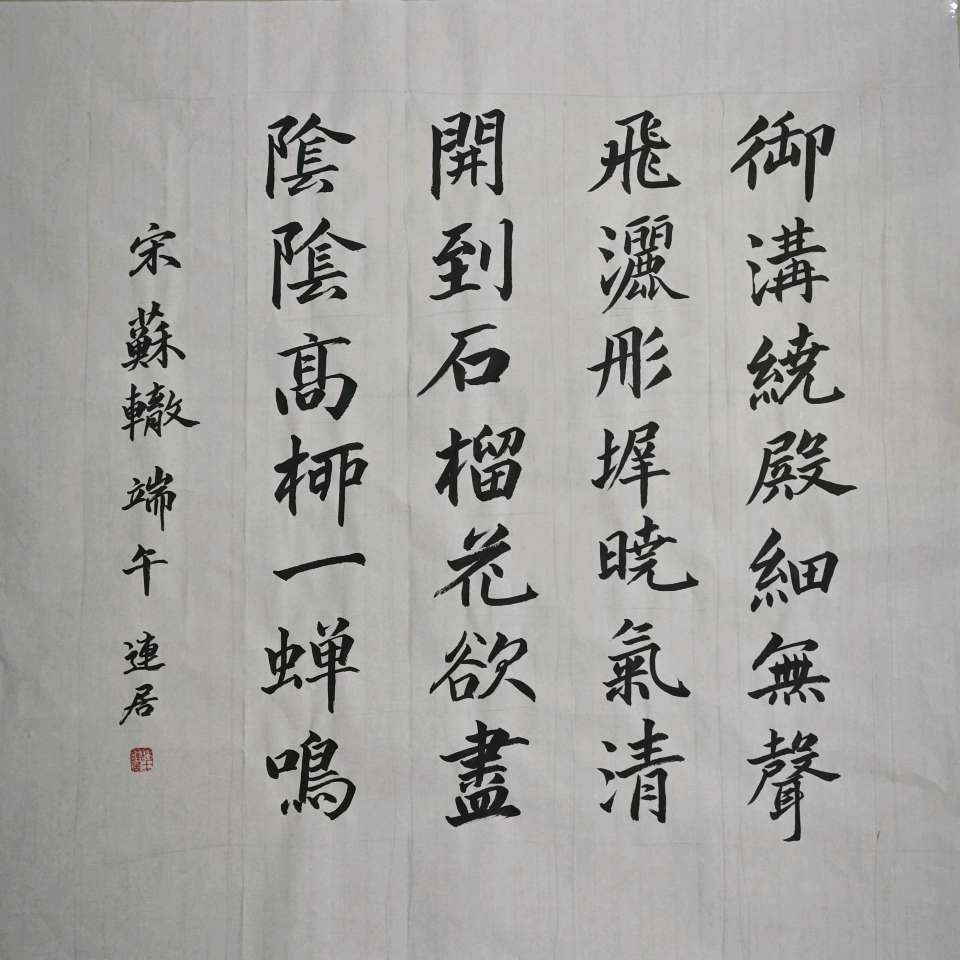 御溝繞殿細無聲
飛灑彤墀曉氣清
開到石榴花欲盡
陰陰高柳一蝉鳴
宋蘇轍端午 連居